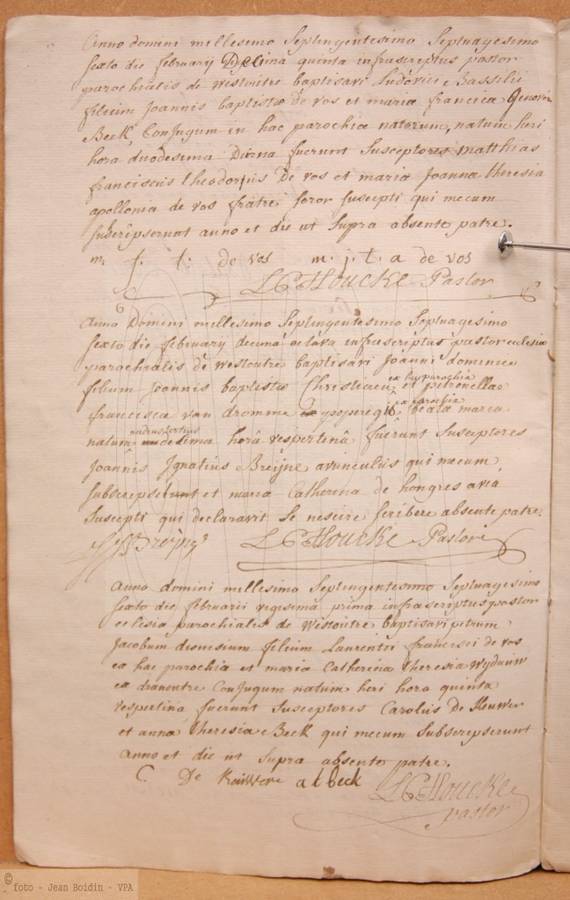 Anno domini millesimo Septingentesimo Septuagesimo
sexto die februarij Decima quinta infrascriptus pastor
parochialis de westoutre baptisavi Ludovicū Bassiliū
filium Joannis baptistæ de vos et maria francisca Genovev
Beck, Conjugum in hac parochia natorum, natum heri
hora duodesima Diurna fuerunt Susceptores Matthias
franciscus theodorus De vos et maria Joanna theresia
apollonia de vos frater soror suscepti qui mecum
subscripserunt anno et die ut supra absente patre.
m. f. t. de vos m. j. t. a de vos
L C Houcke Pastor
Anno Domini millesimo Septingentesimo Septuagesimo
sexto die february decima octava infrascriptus pastor eclesia
parochialis de westoutre baptisavi Joannē dominicū
filium Joannis baptistæ Christiaen ex hac parochia et petronellæ
francisca van dromme ex parochia beata maria
natum undesima hora vespertina fuerunt Susceptores
Joannis Ignatius Breyne avunculus qui mecum
subscripsit et maria Catherina de hongres avia
Suscepti qui declaravit se nescire scribere absente patre.
L C Houcke Pastor
Anno domini millesimo Septingentesimo Septuagesimo
sexto die februarii vigesima prima infrascriptus pastor
eclesia parochialis de Westoutre baptisavi petrum
Jacobum filium Laurentii francisci de vos
ex hac parochia et maria Catherina theresia
ex dranoutre Conjugum natum heri hora quinta
vespertina fuerunt Susceptores Carolus de
et anna theresia Beck qui mecum Subscripserunt
anno et die ut supra absente patre.
C De a t beck L C Houcke
pastor
© foto - Jean Boidin - VPA